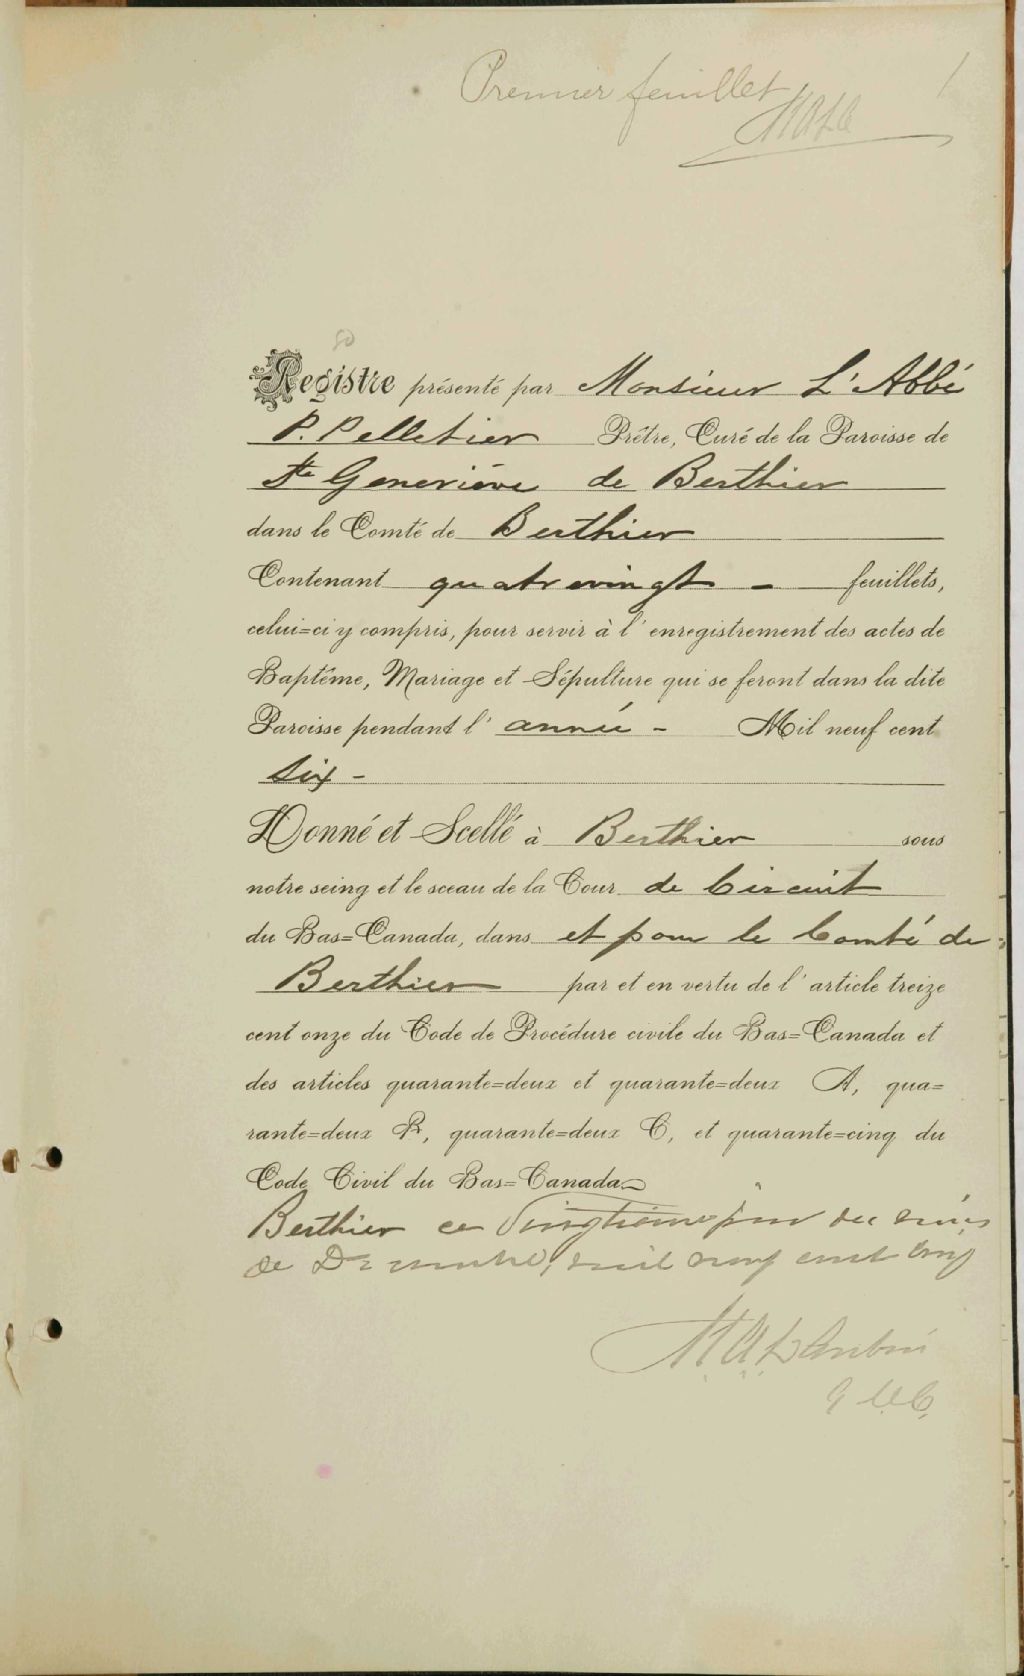 Premier feuillet 1
80
Registre présenté par Monsieur L'Abbé
P. Pelletier Prêtre, Curé de la Paroisse de
Ste Geneviève de Berthier
dans le Comté de Berthier
Contenant quatrevingt - feuillets,
celui=ci y compris, pour servir à l'enregistrement des actes de
Baptême, Mariage et Sépulture qui se feront dans la dite
Paroisse pendant l'année - Mil neuf cent
six -
Donné et Scellé à Berthier sous
notre seing et le sceau de la Cour de Circuit
du Bas=Canada, dans et pour le Comté de
Berthier par et en vertu de l'article treize
cent onze du Code de Procédure civile du Bas=Canada et
des articles quarante=deux et quarante=deux A, qua=
rante=deux B, quarante=deux C, et quarante=cinq du
Code Civil du Bas=Canada
Berthier ce vingtième jour du mois
de Décembre, mil neuf cent cinq